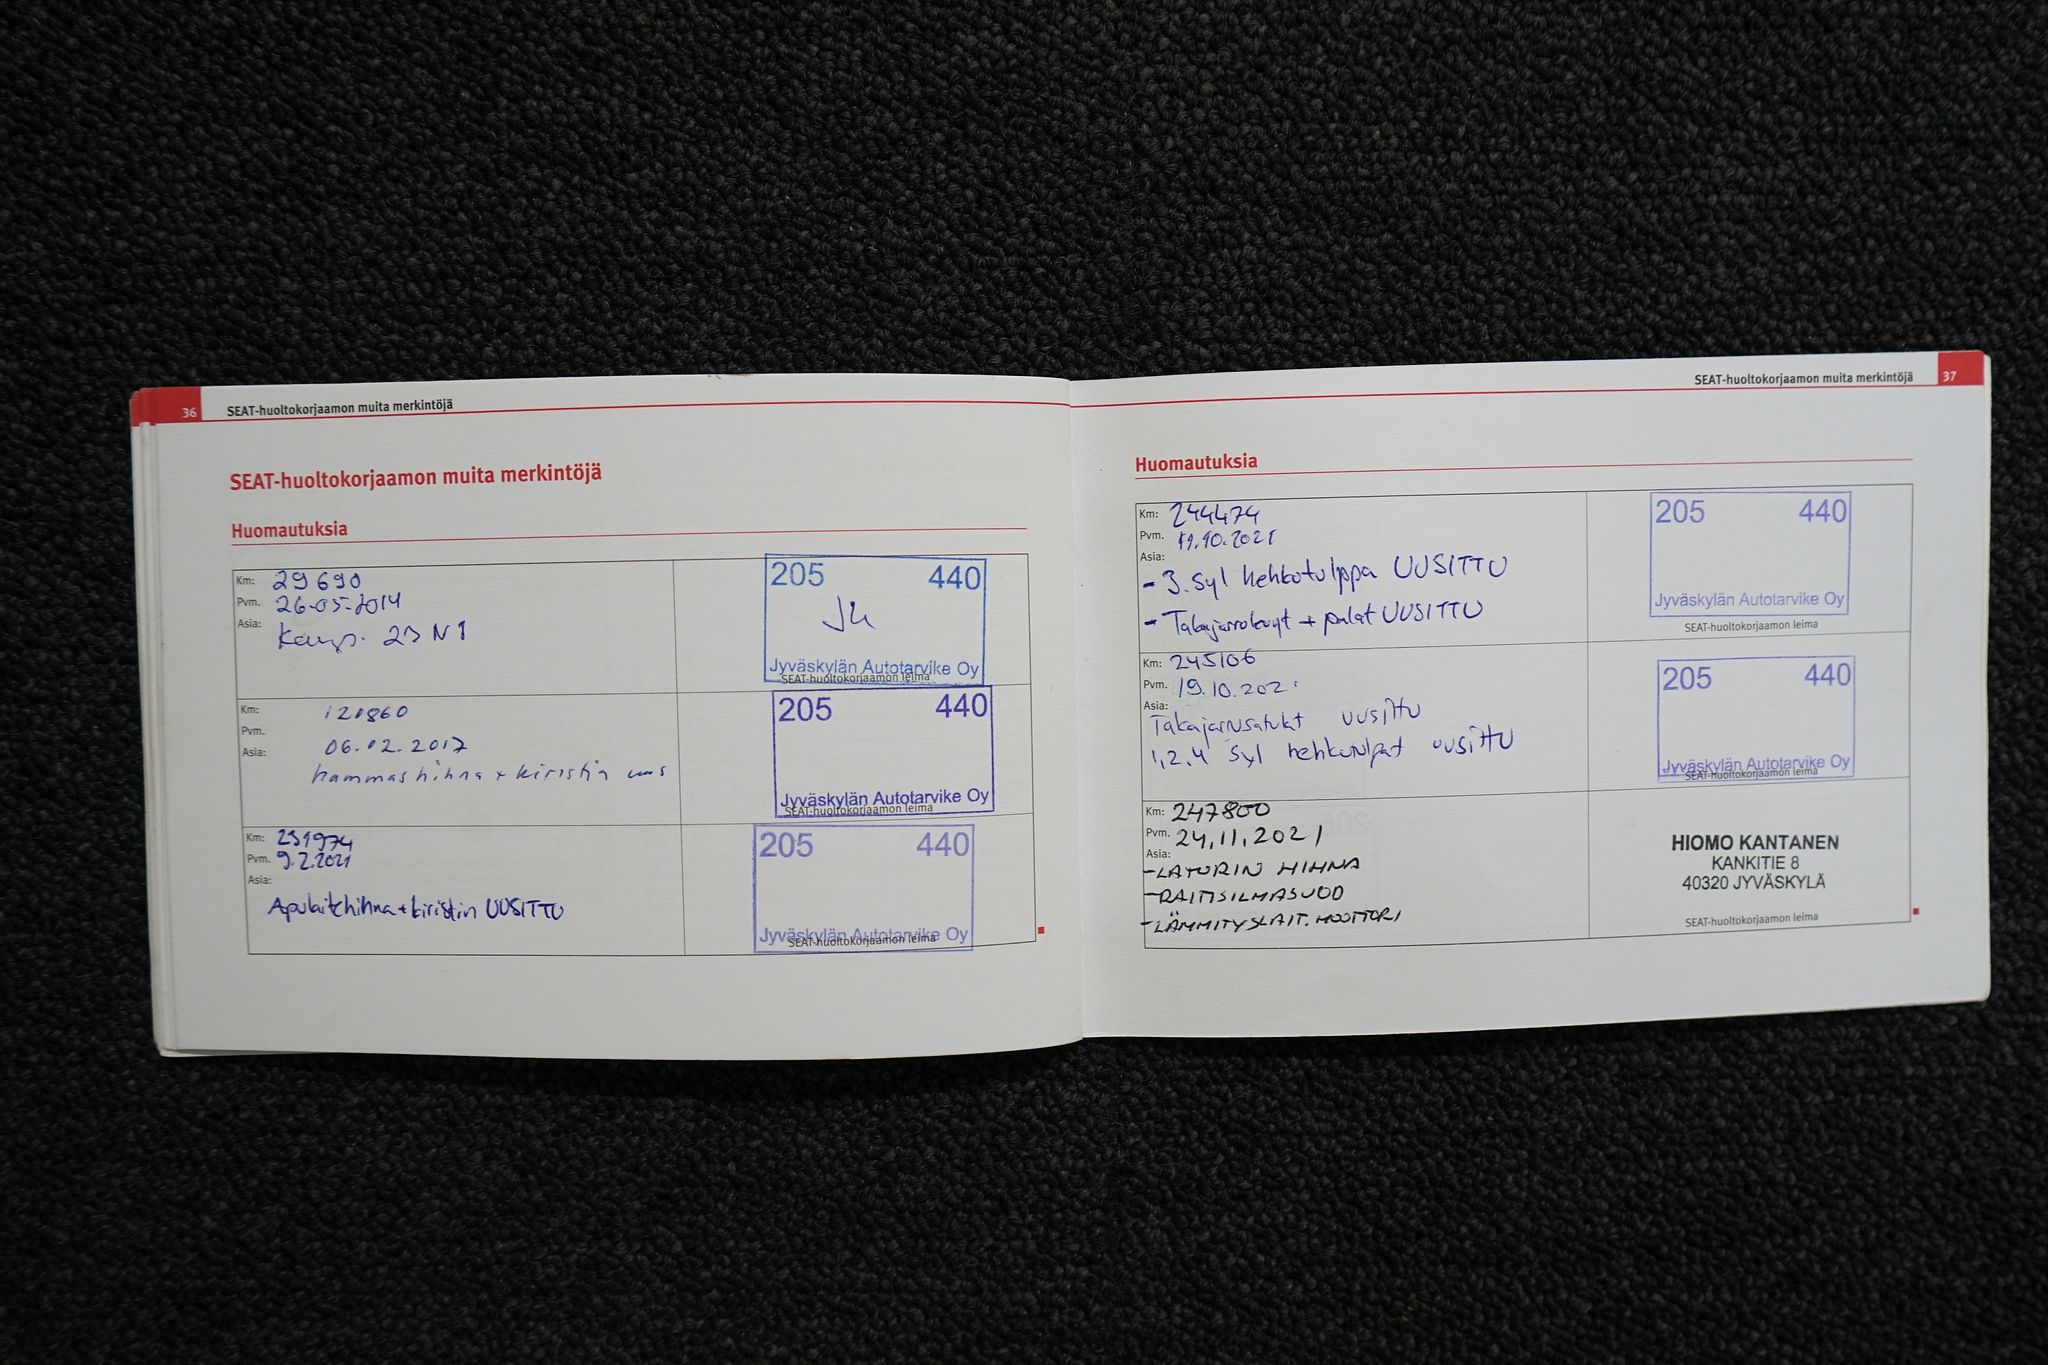 36 SEAT-huoltokorjaamon muita merkintöjä
SEAT-huoltokorjaamon muita merkintöjä
Huomautuksia
Km: 29690
Pvm. 26-05-2014
Asia: Kamp. 23N1
205 440
Jyväskylän Autotarvike Oy
SEAT-huoltokorjaamon leima
Km: 120860
Pvm. 06.02.2017
Asia: hammashihna + kiristin uus
205 440
Jyväskylän Autotarvike Oy
SEAT-huoltokorjaamon leima
Km: 231974
Pvm. 9.2.2021
Asia:
Apulaitehihna + kiristin UUSITTU
205 440
Jyväskylän Autotarvike Oy
SEAT-huoltokorjaamon leima
SEAT-huoltokorjaamon muita merkintöjä 37
Huomautuksia
Km: 244474
Pvm. 11.10.2021
Asia:
- 3. syl hehkutulppa UUSITTU
- Takajarrolevyt + palat UUSITTU
205 440
Jyväskylän Autotarvike Oy
SEAT-huoltokorjaamon leima
Km: 245106
Pvm. 19.10.2021
Asia:
Takajarrusatulat uusittu
1,2,4 syl hehkutulpat uusittu
205 440
Jyväskylän Autotarvike Oy
SEAT-huoltokorjaamon leima
Km: 247800
Pvm. 24.11.2021
Asia:
- LATURIN HIHNA
- RAITISILMASUOD
- LÄMMITYSLAIT. MOOTTORI
HIOMO KANTANEN
KANKITIE 8
40320 JYVÄSKYLÄ
SEAT-huoltokorjaamon leima